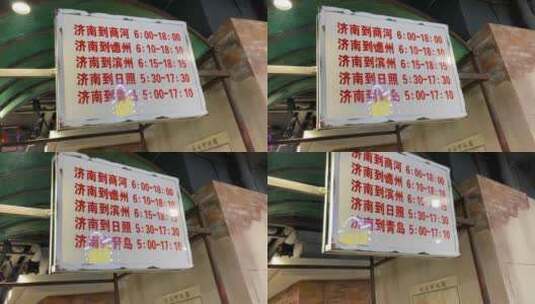 济南到商河 6:00-18:00
济南到德州 6:10-18:10
济南到滨州 6:15-18:15
济南到日照 5:30-17:30
济南到岛 5:00-17:10
济南到商河 6:00-18:00
济南到德州 6:10-18:10
济南到滨州 6:15-18:15
济南到日照 5:30-17:30
济南到岛 5:00-17:10
济南到商河 6:00-18:00
济南到德州 6:10-18:10
济南到滨州 6:15-18:10
济南到日照 5:30-17:30
济青岛 5:00-17:10
济南到商河 6:00-18:00
济南到德州 6:10-18:10
济南到滨州 6:15-18:15
济南到日照 5:30-17:30
到青岛 5:00-17:10